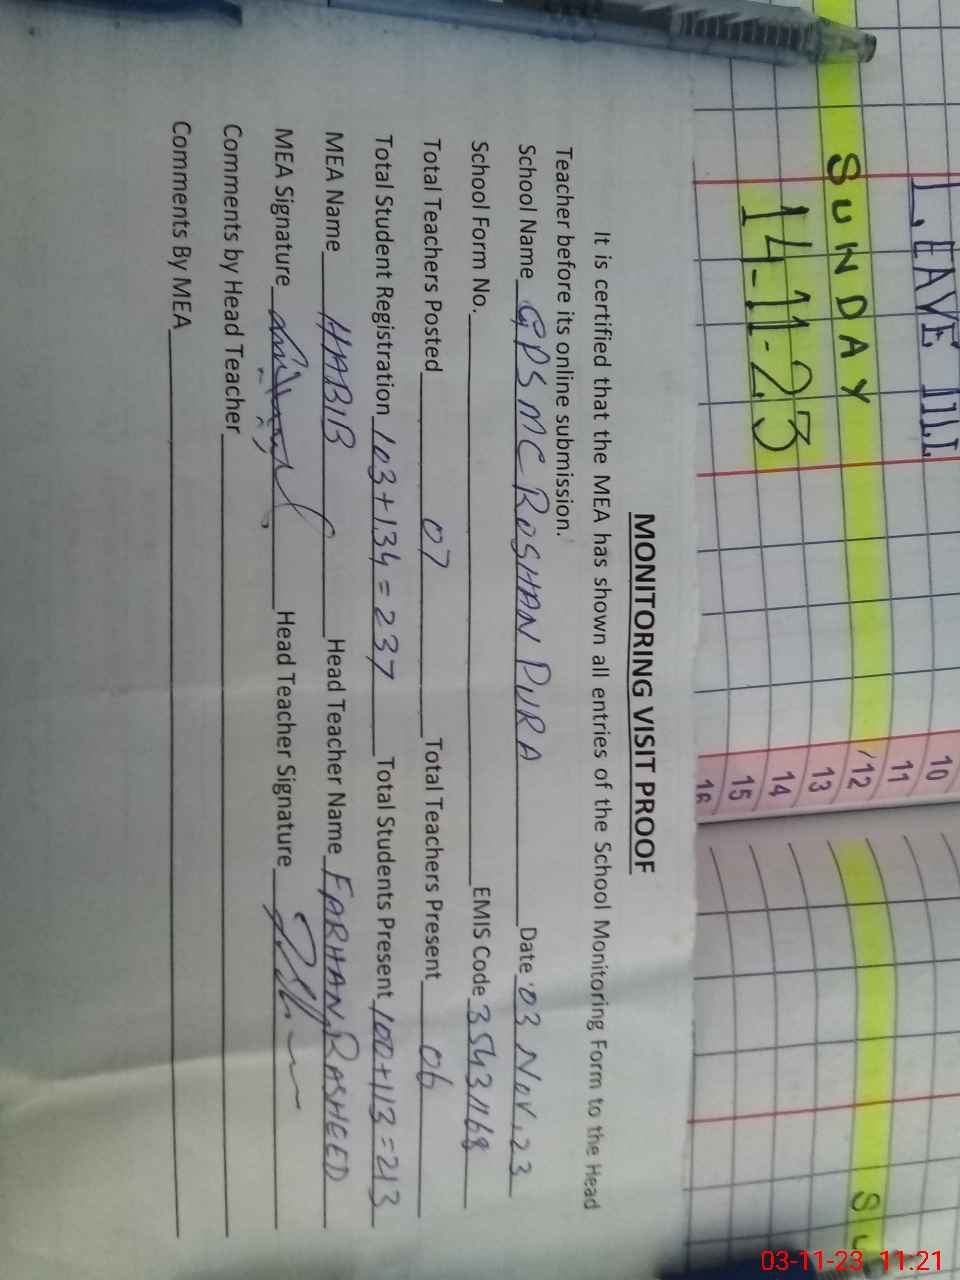 LEAVE TILL
SUNDAY
14-11-23
10
11
12
13
14
15
16
SU
MONITORING VISIT PROOF
It is certified that the MEA has shown all entries of the School Monitoring Form to the Head
Teacher before its online submission.
School Name GPS MC ROSHAN PURA Date 03 Nov. 23
School Form No. EMIS Code 35431168
Total Teachers Posted 07 Total Teachers Present 06
Total Student Registration 103+134=237 Total Students Present 100+113=213
MEA Name HABIB Head Teacher Name FARHAN RASHEED
MEA Signature Head Teacher Signature
Comments by Head Teacher
Comments By MEA
03-11-23 11:21